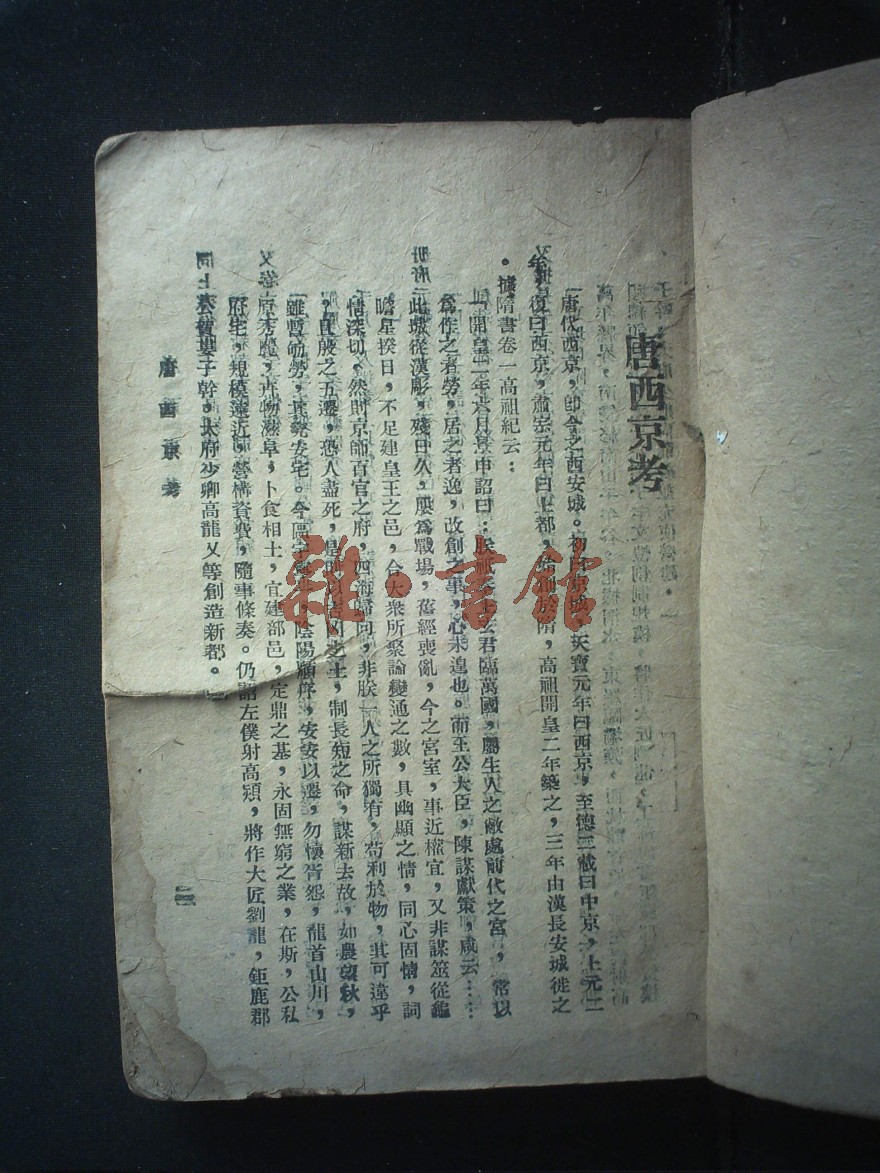 唐西京考
唐代西京,卽今之西安城。初曰京城,天寶元年曰西京,至德二載曰中京,上元二
年復曰西京,肅宗元年曰上都,始創於隋,高祖開皇二年築之,三年由漢長安城徙之
。據隋書卷一高祖紀云:
開皇二年六月景申詔曰:朕祗奉上玄君臨萬國,屬生人之敝處前代之宮,常以
爲作之者勞,居之者逸,改創之事,心未遑也。而王公大臣,陳謀獻策,咸云:……
此城從漢彫,殘日久,屢爲戰場,舊經喪亂,今之宮室,事近權宜,又非謀筮從龜
瞻星揆日,不足建皇王之邑,合大衆所聚論變通之數,具幽顯之情,同心固情,詞
情深切。然則京師百官之府,四海歸向,非朕一人之所獨有,苟利於物,其可違乎
,且殷之五遷,恐人盡死,是則以吉凶之土,制長短之命,謀新去故,如農望秋,
雖暫劬勞,其究安宅。今區宇寧一,陰陽順序,安安以遷,勿懷胥怨,龍首山川,
原秀麗,卉物滋阜,卜食相土,宜建都邑,定鼎之基,永固無窮之業,在斯,公私
府宅,規模遠近,營構資費,隨事條奏。仍詔左僕射高熲,將作大匠劉龍,鉅鹿郡
公賀婁子幹,大府少卿高龍叉等創造新都。
唐西京考
雜·書館